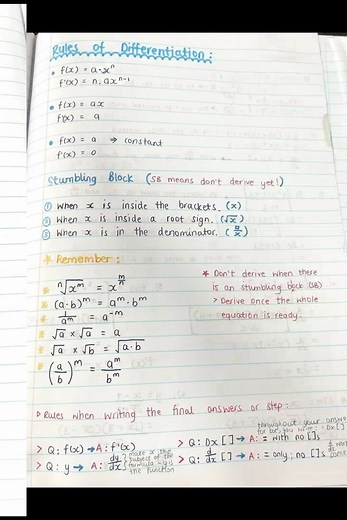 Rules of Differentiation:
• f(x) = a·xⁿ
f'(x) = n·axⁿ⁻¹
• f(x) = ax
f'(x) = a
• f(x) = a → constant
f'(x) = 0
Stumbling Block (SB means don't derive yet!)
① When x is inside the brackets. (x)
② When x is inside a root sign. (√x)
③ When x is in the denominator.
* Remember:
ⁿ√xᵐ = x^(m/n)
(a·b)ᵐ = aᵐ·bᵐ
1/aᵐ = a⁻ᵐ
√a × √a = a
√a × √b = √a·b
(a/b)ᵐ = aᵐ/bᵐ
* Don't derive when there
is an stumbling block (SB)
> Derive once the whole
equation is ready
▷ Rules when writing the final answers or step:
throughout your answer
> Q: f(x) → A: f'(x)
> Q: y → A: dy/dx
make x the
subject of the
formula
the function
> Q: Dx [ ] → A: = with no [ ]s
> Q: d/dx [ ] → A: = only; no [ ]s